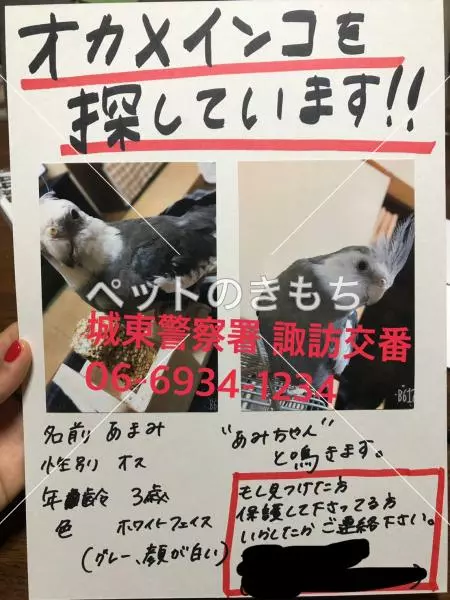 オカメインコを
探しています!!
ペットのきもち
城東警察署 諏訪交番
06-6934-1234
名前 あまみ
性別 オス
年齢 3歳
色 ホワイトフェイス
(グレー、顔が白い)
"あみちゃん"
と鳴きます。
もし見つけた方
保護して下さってる方
いらしたらご連絡下さい。